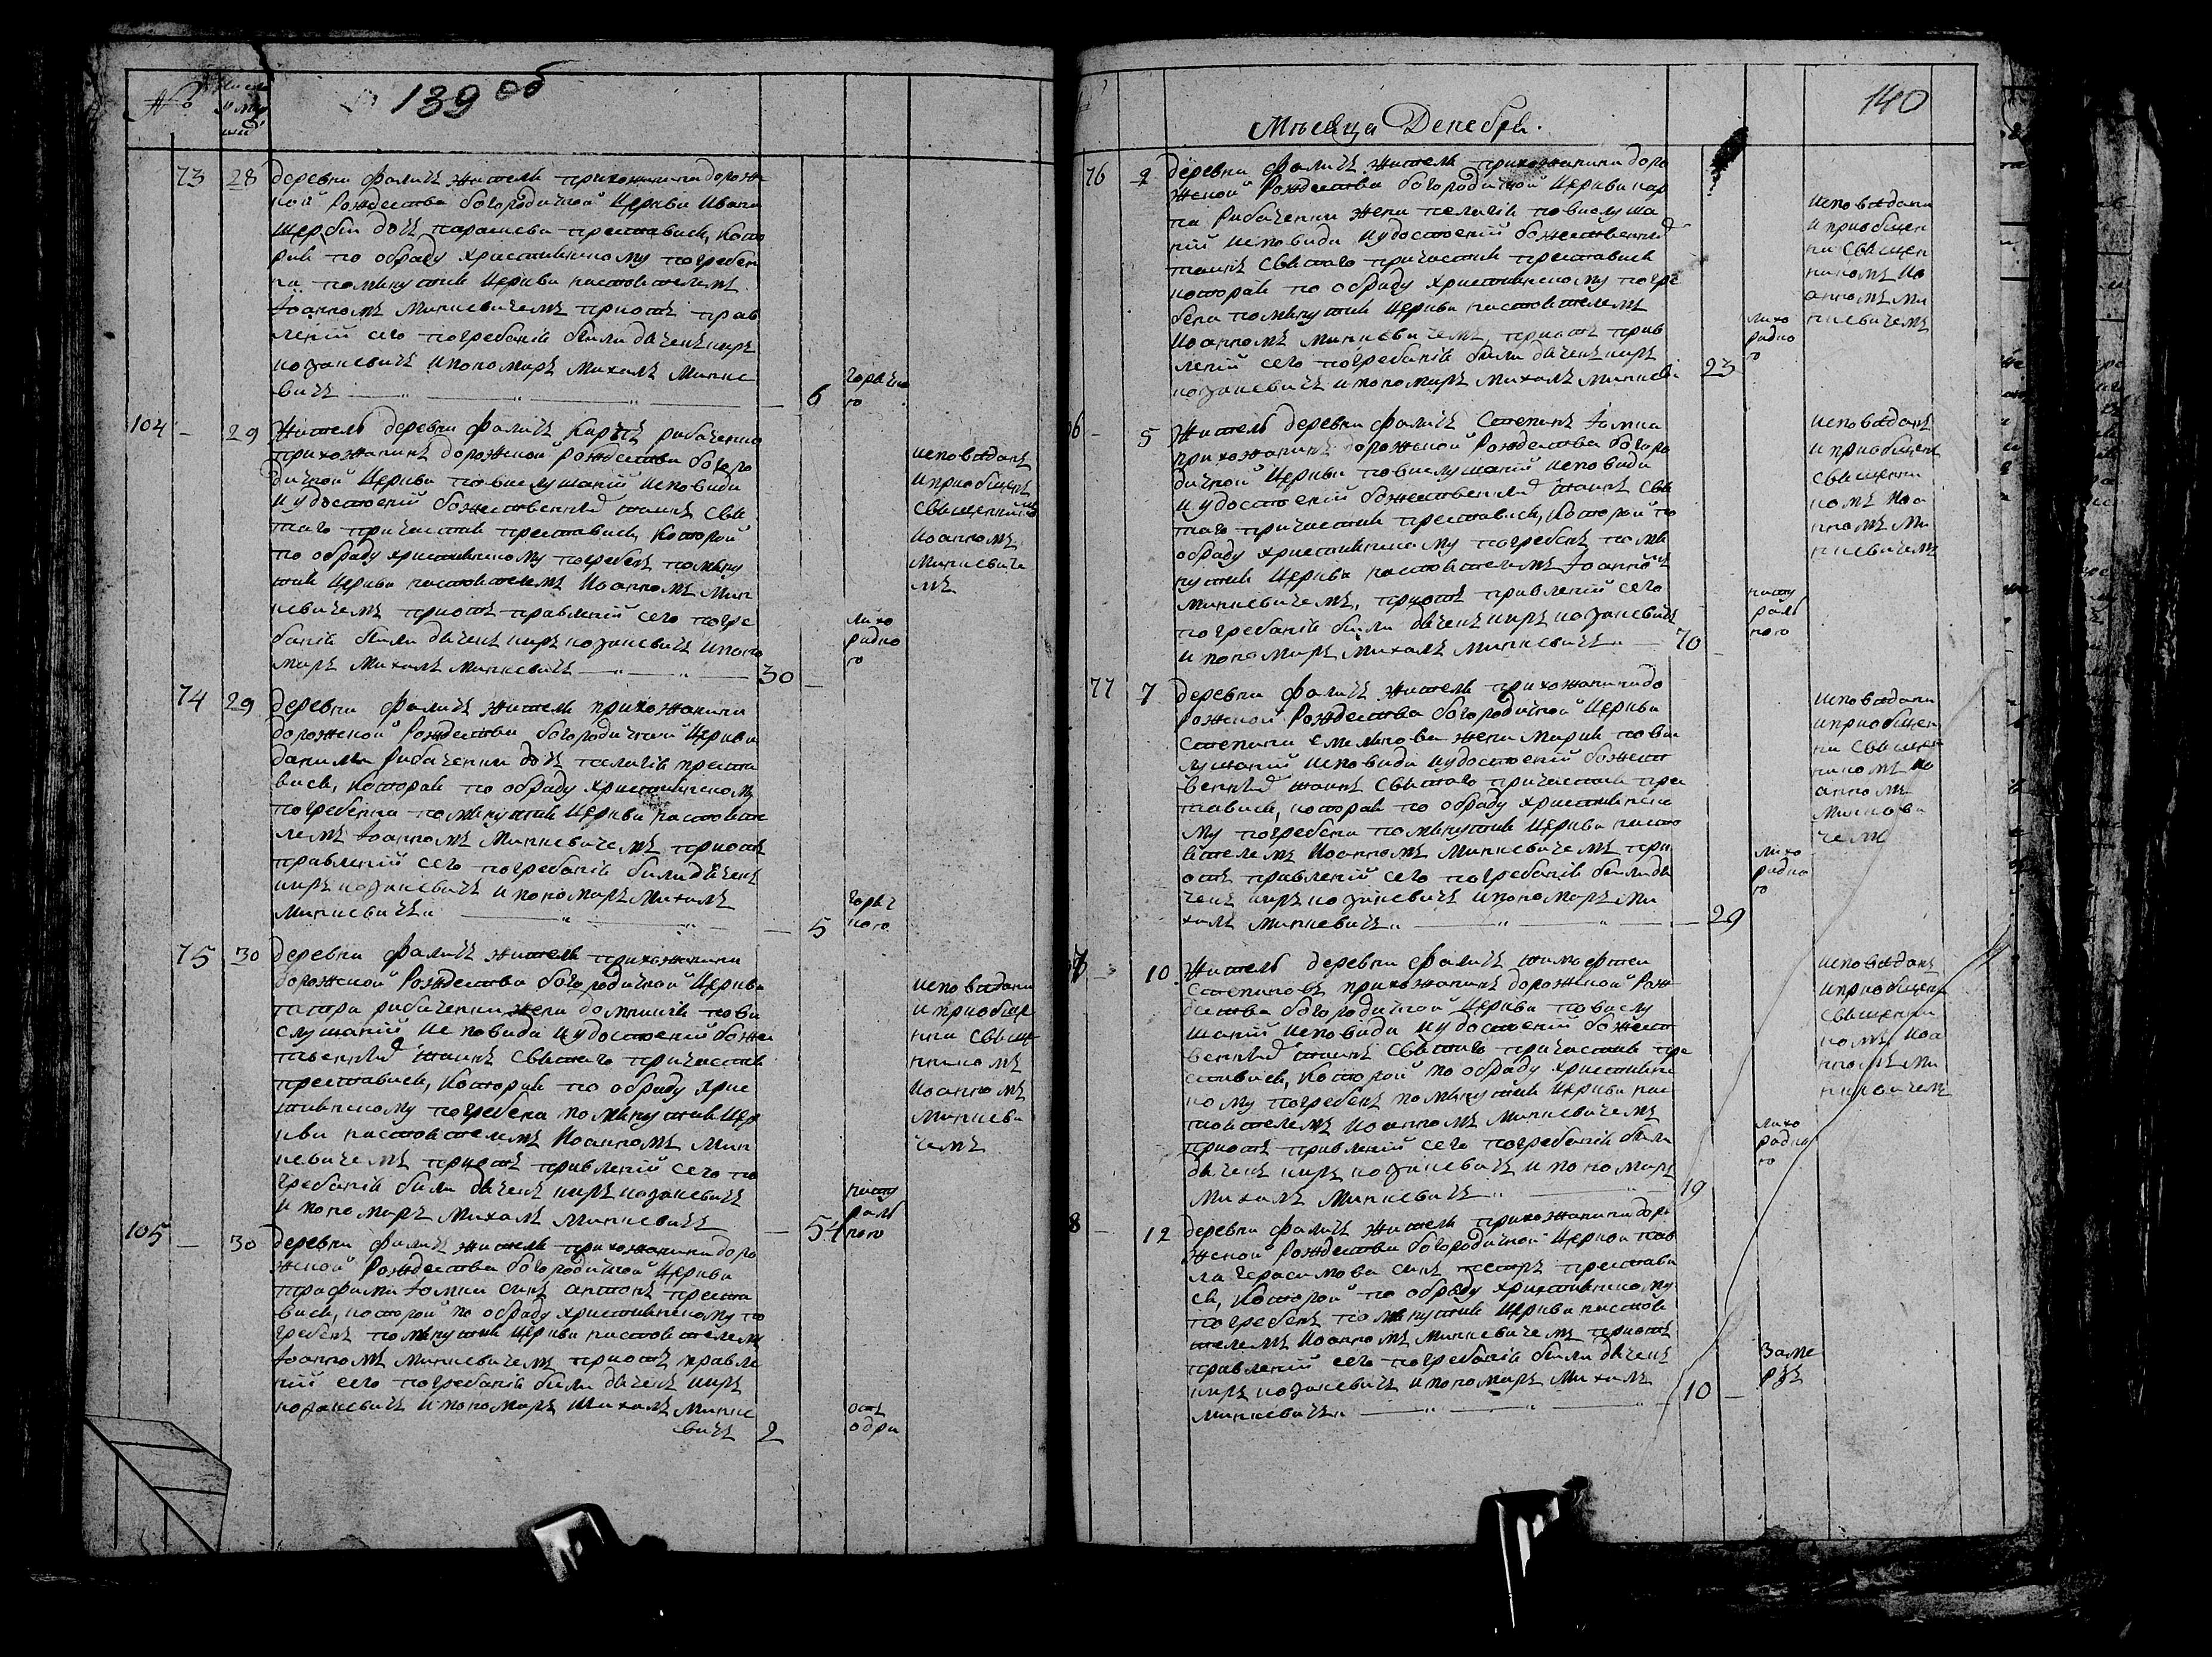 №
числа
умер
ших
139 об
73 28 деревни Фаличъ жителя прихожанина дорож
ной Рождества богородичной Церкви Ивана
Щербы дочь парасцева преставися, кото
рая по обряду християнскому погребен
на помянутыя Церкви настоятелемъ
Іоанномъ Минкевичемъ приотъ прав
леній сего погребанія были дячекъ киръ
козакевичъ и пономаръ Михалъ Минке
вичъ — 6
горячко
ю
104 — 29 Житель деревни Фаличъ рибаченко
прихожанинъ дорожской рождества богоро
дичной Церкви повислушаній исповиди
и удостоеній божественнихъ таинъ свя
таго причастия преставися, который
по обряду християнскому погребенъ помяну
тия Церкви настоятелемъ Иоанномъ Мин
кевичемъ приотъ правленій сего погре
банія были дячекъ киръ козакевичъ и поно
маръ Михалъ Минкевичъ — 30 —
лихо
радко
ю
исповѣданъ
и приобщенъ
священникомъ
Иоанномъ
Минкевиче
мъ
74 29 деревни Фаличъ жителя прихожанина
дорожской Рождества богородичной Церкви
данила Рибаченки дочь пелагія преста
вися, которая по обряду християнскому
погребенна помянутия Церкви настояте
лемъ Іоанномъ Минкевичемъ приотъ
правленій сего погребанія были дячекъ
киръ козакевичъ и пономаръ Михалъ
Минкевичъ — 5
горяч
кою
75 30 деревни Фаличъ жителя прихожанина
дорожской Рождества богородичной Церкви
петра рибаченки жена домникія пови
слушаній исповиди и удостоеній боже
твеннихъ таинъ святаго причастия
преставися, которая по обряду хрис
тиянскому погребена помянутия Цер
кви настоятелемъ Иоанномъ Мин
кевичемъ приотъ правленій сего по
гребанія были дячекъ киръ козакевичъ
и пономаръ Михалъ Минкевичъ — 54
нату
раль
ною
исповѣдана
и приобще
нна свяще
нникомъ
Иоанномъ
Минкеви
чемъ
105 — 30 деревни Фаличъ жителя прихожанина доро
жской Рождества богородичной Церкви
трафима Іомки синъ антонъ преста
вися, который по обряду християнскому по
гребенъ помянутия Церкви настоятелемъ
Іоанномъ Минкевичемъ приотъ правле
ній сего погребанія были дячекъ киръ
козакевичъ и пономаръ Михалъ Минке
вичъ 2
отъ
одри
140
Мѣсяца Декебря.
76 2 деревни Фаличъ жителя прихожанина доро
жской Рождества богородичной Церкви кар
па Рибаченки жена пелагія повислуша
ній исповиди и удостоеній божественнихъ
таинъ святаго причастия преставися
которая по обряду християнскому погре
бена помянутия Церкви настоятелемъ
Иоанномъ Минкевичемъ, приотъ прав
леній сего погребанія были дячекъ киръ
козакевичъ и пономаръ Михалъ Минкеви 23
лихо
радко
ю
исповѣдана
и приобщен
на священ
никомъ Ио
анномъ Ми
нкевичемъ
6 — 5 Житель деревни Фаличъ Степанъ Іомка
прихожанинъ дорожской Рождества богоро
дичной Церкви повислушаній исповиди
и удостоеній божественнихъ таинъ свя
таго причастия преставися, который по
обряду християнскому погребенъ помя
нутия Церкви настоятелемъ Іоанномъ
Минкевичемъ, приотъ правленій сего
погребанія были дячекъ киръ козакевичъ
и пономаръ Михалъ Минкевичъ — 70 —
нату
раль
ною
исповѣданъ
и приобщенъ
священни
комъ Иоа
нномъ Ми
нкевичемъ
77 7 деревни Фаличъ жителя прихожанина до
рожской Рождества богородичной Церкви
Степана емелянова жена Мария пови
слушаній исповиди и удостоеній божест
веннихъ таинъ святаго причастия пре
тавися, которая по обряду християнско
му погребена помянутия Церкви насто
ятелемъ Иоанномъ Минкевичемъ при
отъ правленій сего погребанія были дя
чекъ киръ козакевичъ и пономаръ Ми
халъ Минкевичъ — 29
лихо
радко
ю
исповѣдана
и приобщен
на священ
никомъ Ио
анномъ
Минкеви
чемъ
7 — 10 Житель деревни Фаличъ тимофтей
Степановъ прихожанинъ дорожской Рож
дества богородичной Церкви повислу
шаній исповиди и удостоеній божест
веннихъ таинъ святаго причастия пре
ставися, который по обряду християнс
кому погребенъ помянутия Церкви нас
тоятелемъ Иоанномъ Минкевичемъ
приотъ правленій сего погребанія были
дячекъ киръ козакевичъ и пономаръ
Михалъ Минкевичъ — 19
лихо
радко
ю
исповѣданъ
и приобщенъ
священни
комъ Иоа
нномъ Ми
нкевичемъ
8 — 12 деревни Фаличъ жителя прихожанина доро
жской Рождества богородичной Церкви пав
ла герасимова синъ петръ преставы
ся, который по обряду християнскому
погребенъ помянутия Церкви настоя
телемъ Иоанномъ Минкевичемъ приотъ
правленій сего погребанія были дячекъ
киръ козакевичъ и пономаръ Михалъ
Минкевичъ — 10 —
Заме
рзъ